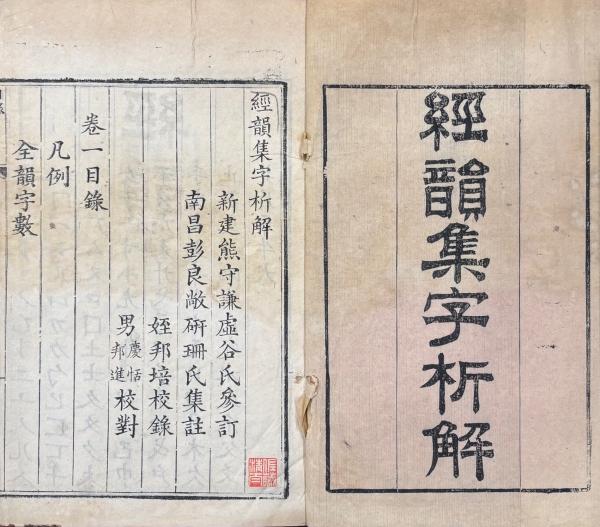 經韻集字析解
經韻集字析解
新建熊守謙虛谷氏參訂
南昌彭良敞研珊氏集註
姪邦培校錄
男慶恬邦進校對
卷一目錄
凡例
全韻字數